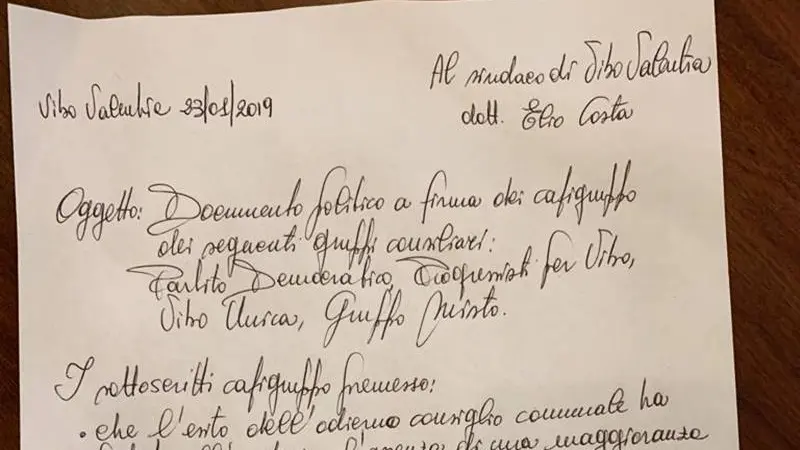 Al sindaco di Vibo Valentia
Vibo Valentia 23/01/2019
dott. Elio Costa
Oggetto: Documento politico a firma dei capigruppo
dei seguenti gruppi consiliari:
Partito Democratico, Progressisti per Vibo,
Vibo Unica, Gruppo Misto.
I sottoscritti capigruppo premesso:
• che l'esito dell'odierno consiglio comunale ha
di una maggioranza